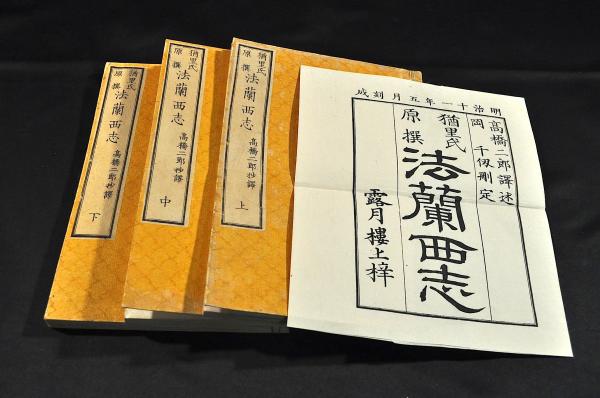 猶里氏
原撰
法蘭西志
高橋二郎抄譯
下
猶里氏
原撰
法蘭西志
高橋二郎抄譯
中
猶里氏
原撰
法蘭西志
高橋二郎抄譯
上
明治十一年五月刻成
高橋二郎譯述
岡千仭刪定
猶里氏
原撰
法蘭西志
露月樓上梓